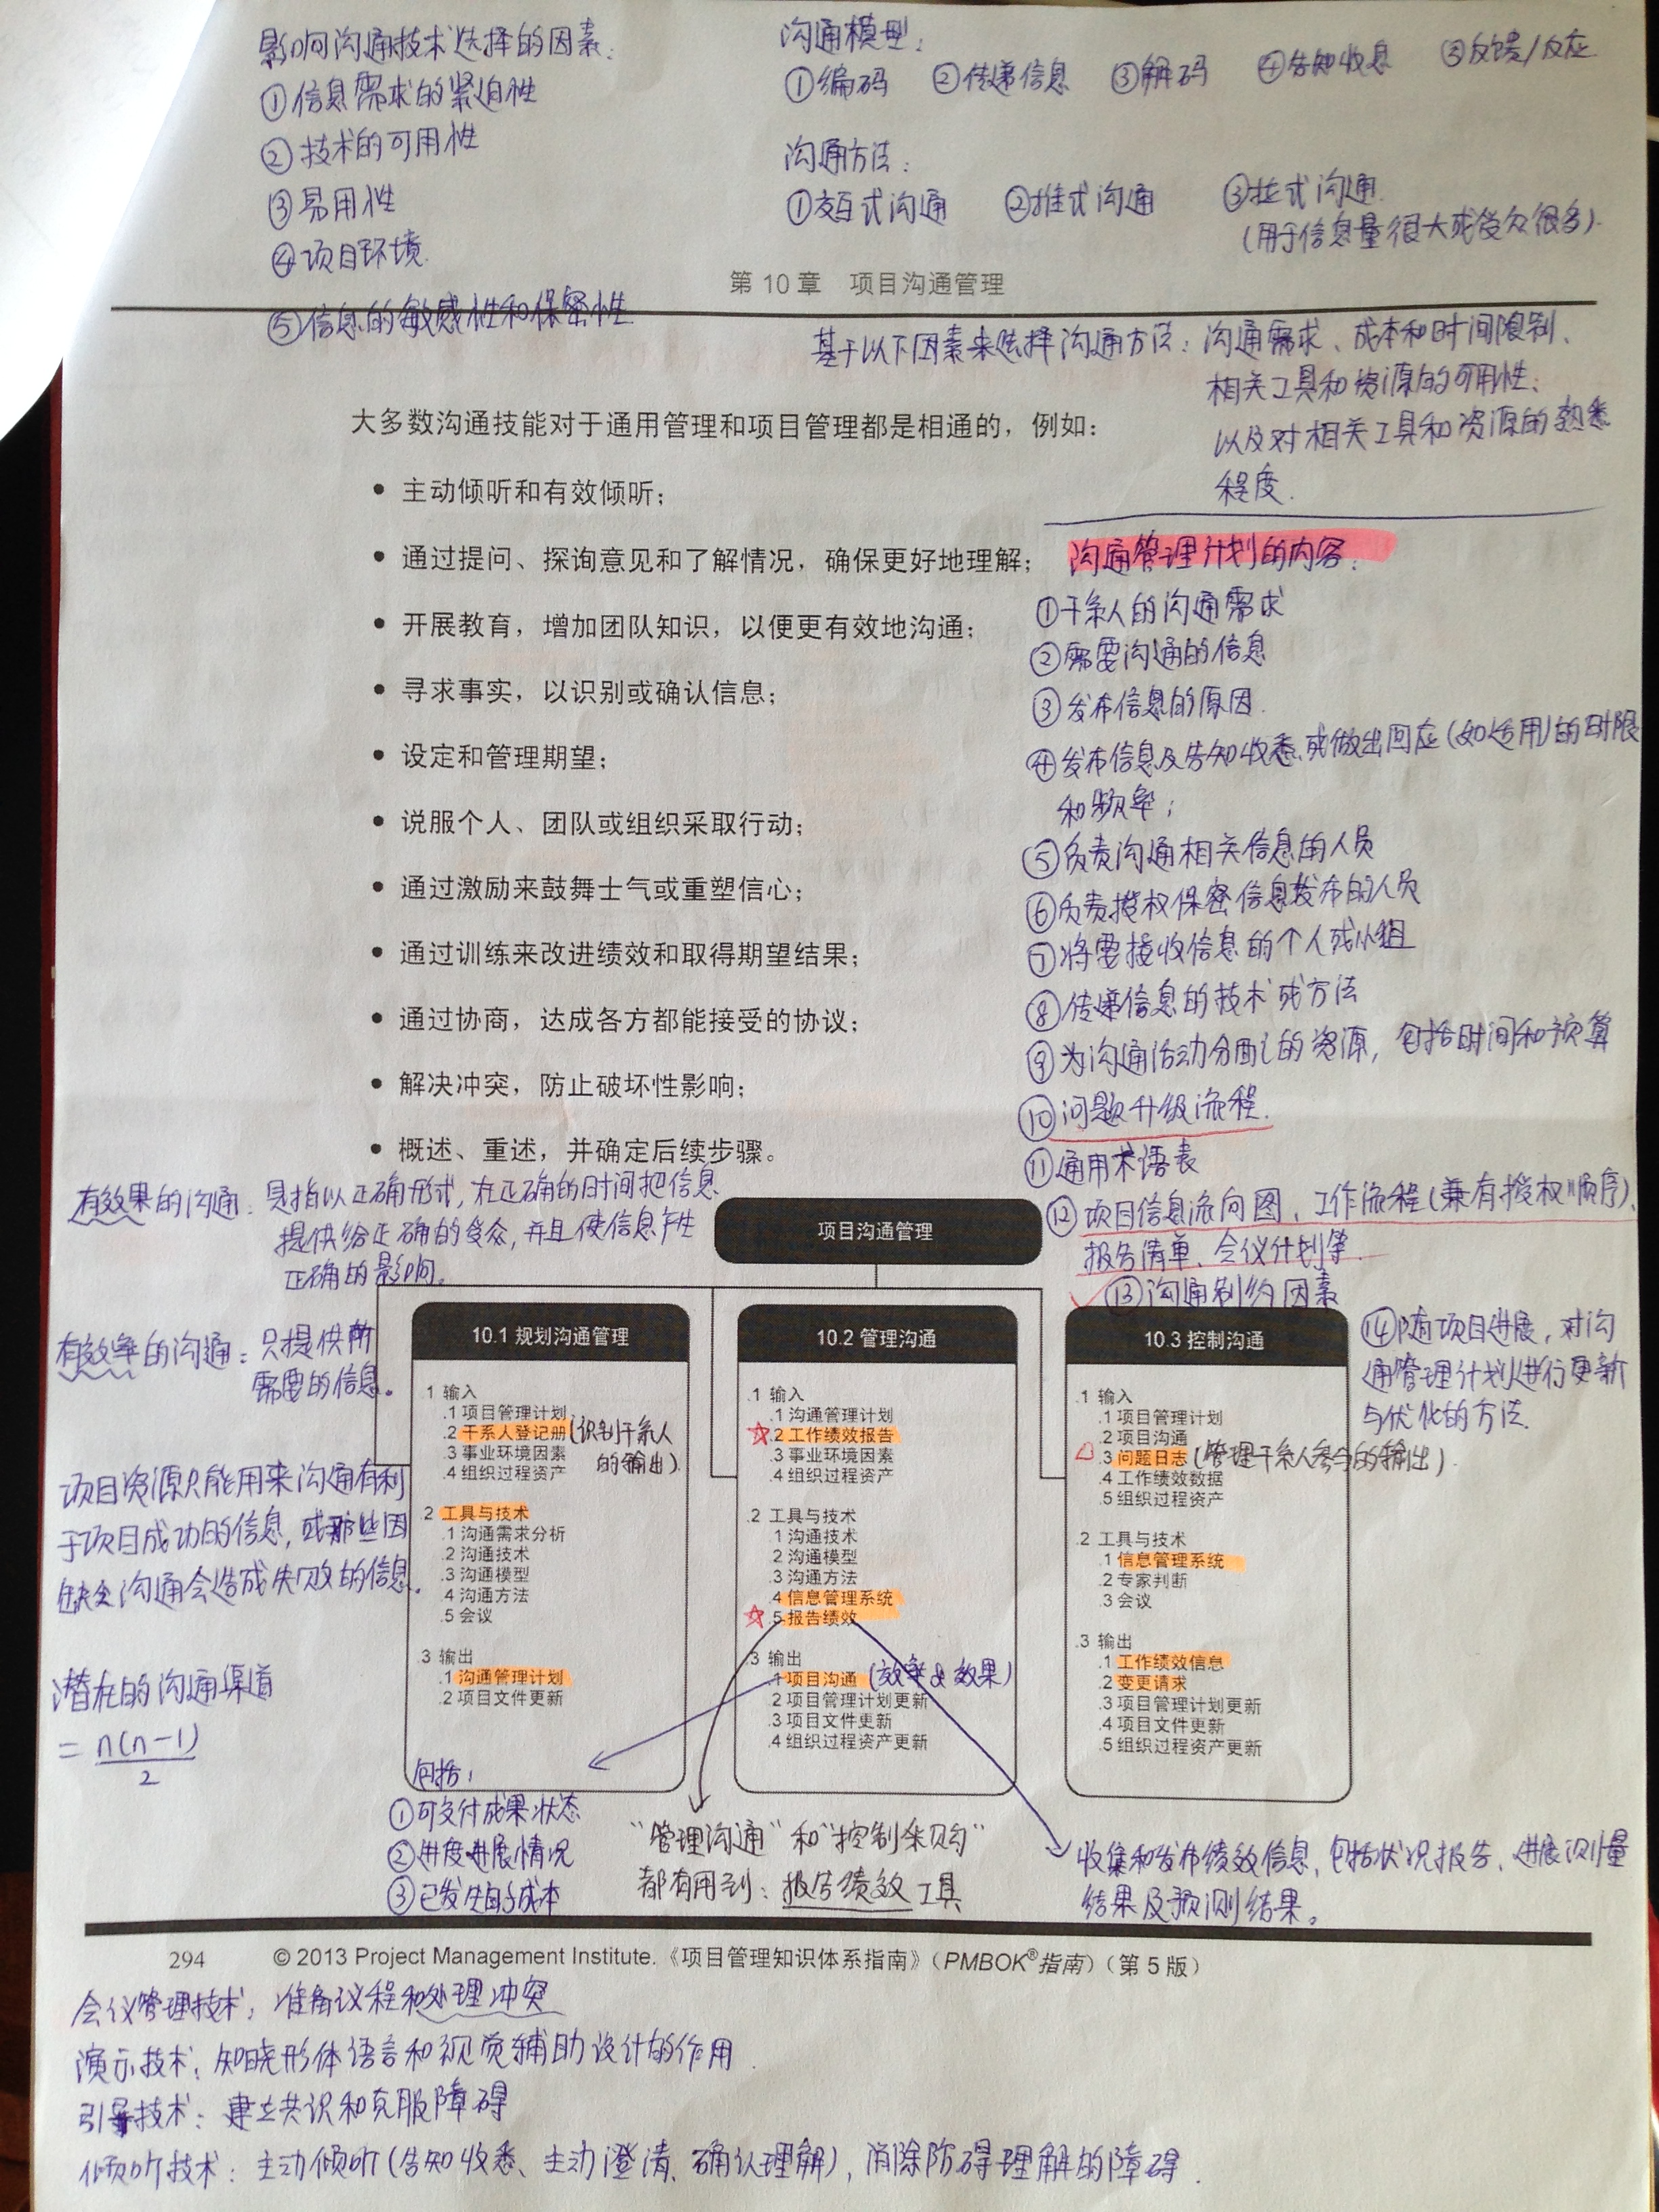 影响沟通技术选择的因素：
①信息需求的紧迫性
②技术的可用性
③易用性
④项目环境
⑤信息的敏感性和保密性
沟通模型：
①编码 ②传递信息 ③解码 ④告知收悉 ⑤反馈/反应
沟通方法：
①交互式沟通 ②推式沟通 ③拉式沟通
(用于信息量很大或受众很多).
第 10 章 项目沟通管理
基于以下因素来选择沟通方法：沟通需求、成本和时间限制、
相关工具和资源的可用性、
以及对相关工具和资源的熟悉
程度.
大多数沟通技能对于通用管理和项目管理都是相通的，例如：
• 主动倾听和有效倾听；
• 通过提问、探询意见和了解情况，确保更好地理解；
• 开展教育，增加团队知识，以便更有效地沟通；
• 寻求事实，以识别或确认信息；
• 设定和管理期望；
• 说服个人、团队或组织采取行动；
• 通过激励来鼓舞士气或重塑信心；
• 通过训练来改进绩效和取得期望结果；
• 通过协商，达成各方都能接受的协议；
• 解决冲突，防止破坏性影响；
• 概述、重述，并确定后续步骤。
沟通管理计划的内容：
①干系人的沟通需求
②需要沟通的信息
③发布信息的原因.
④发布信息及告知收悉、或做出回应(如适用)的时限
和频率；
⑤负责沟通相关信息的人员
⑥负责授权保密信息发布的人员
⑦将要接收信息的个人或小组
⑧传递信息的技术或方法
⑨为沟通活动分配的资源，包括时间和预算
⑩问题升级流程.
⑪通用术语表
⑫项目信息流向图、工作流程(兼有授权顺序)、
报告清单、会议计划等.
⑬沟通制约因素
⑭随项目进展，对沟
通管理计划进行更新
与优化的方法.
有效果的沟通：是指以正确形式，在正确的时间把信息
提供给正确的受众，并且使信息产生
正确的影响。
有效率的沟通：只提供所
需要的信息。
项目资源只能用来沟通有利
于项目成功的信息，或那些因
缺乏沟通会造成失败的信息.
潜在的沟通渠道
= n(n-1)
2
项目沟通管理
10.1 规划沟通管理
.1 输入
.1 项目管理计划
.2 干系人登记册(识别干系人
的输出)
.3 事业环境因素
.4 组织过程资产
.2 工具与技术
.1 沟通需求分析
.2 沟通技术
.3 沟通模型
.4 沟通方法
.5 会议
.3 输出
.1 沟通管理计划
.2 项目文件更新
10.2 管理沟通
.1 输入
.1 沟通管理计划
.2 工作绩效报告
.3 事业环境因素
.4 组织过程资产
.2 工具与技术
.1 沟通技术
.2 沟通模型
.3 沟通方法
.4 信息管理系统
.5 报告绩效
.3 输出
.1 项目沟通 (效率&效果)
.2 项目管理计划更新
.3 项目文件更新
.4 组织过程资产更新
10.3 控制沟通
.1 输入
.1 项目管理计划
.2 项目沟通
.3 问题日志 (管理干系人参与的输出).
.4 工作绩效数据
.5 组织过程资产
.2 工具与技术
.1 信息管理系统
.2 专家判断
.3 会议
.3 输出
.1 工作绩效信息
.2 变更请求
.3 项目管理计划更新
.4 项目文件更新
.5 组织过程资产更新
包括：
①可交付成果状态
②进度进展情况
③已发生的成本
“管理沟通”和“控制采购”
都有用到：报告绩效工具
收集和发布绩效信息，包括状况报告、进展测量
结果及预测结果。
294 © 2013 Project Management Institute.《项目管理知识体系指南》（PMBOK®指南）（第 5 版）
会议管理技术：准备议程和处理冲突
演示技术：知晓形体语言和视觉辅助设计的作用.
引导技术：建立共识和克服障碍
倾听技术：主动倾听(告知收悉、主动澄清、确认理解)，消除妨碍理解的障碍.